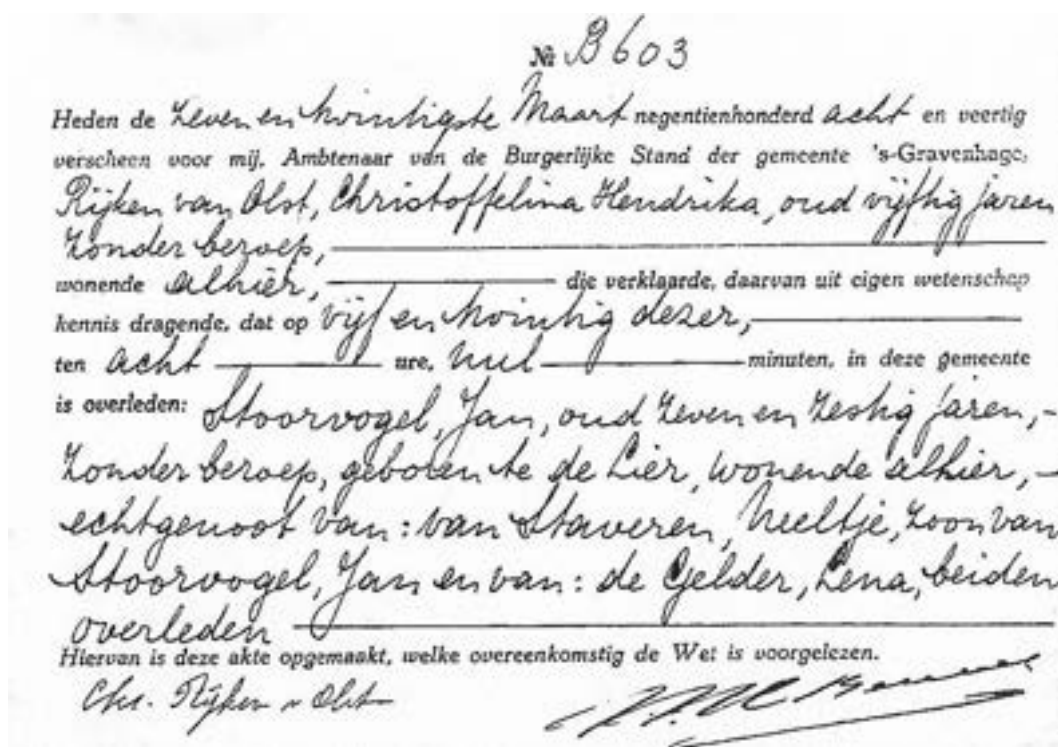 № B 603
Heden de zeven en twintigste Maart negentienhonderd acht en veertig
verscheen voor mij, Ambtenaar van de Burgerlijke Stand der gemeente 's-Gravenhage,
Rijken van Olst, Christoffelina Hendrika, oud vijftig jaren
zonder beroep,
wonende alhier, die verklaarde, daarvan uit eigen wetenschap
kennis dragende, dat op vijf en twintig dezer,
ten acht ure, nul minuten, in deze gemeente
is overleden: Stoorvogel, Jan, oud zeven en zestig jaren,-
zonder beroep, geboren te de Lier, wonende alhier,-
echtgenoot van: van Staveren, Neeltje, zoon van
Stoorvogel, Jan en van: de Gelder, Lena, beiden
overleden
Hiervan is deze akte opgemaakt, welke overeenkomstig de Wet is voorgelezen.
Chr. Rijken v Olst